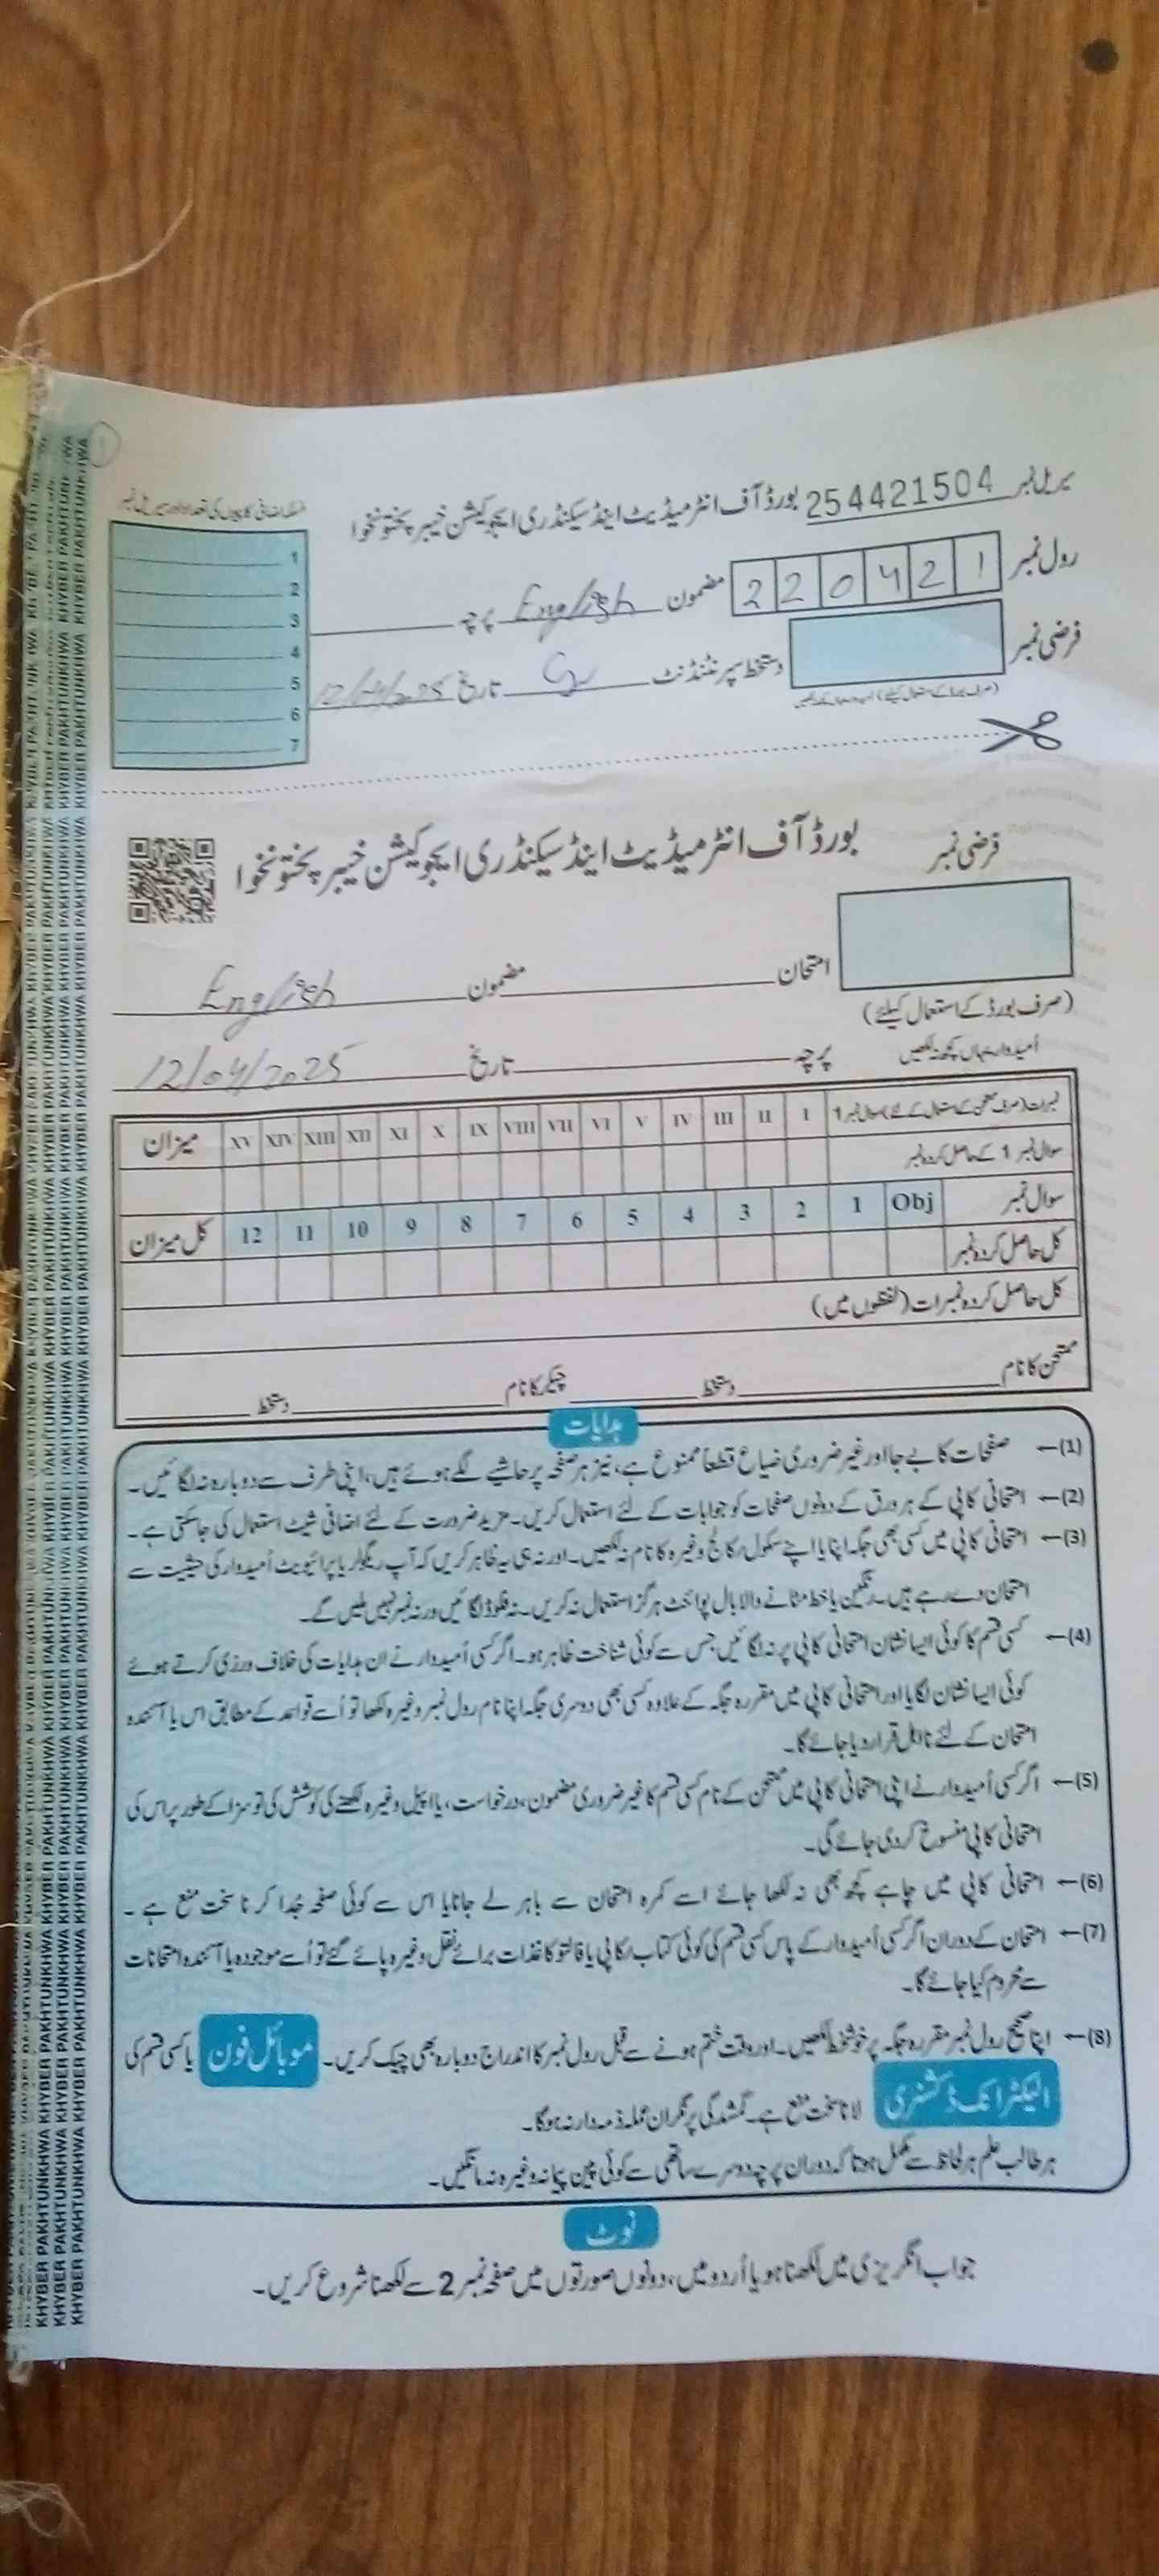 سیریل نمبر 254421504 بورڈ آف انٹرمیڈیٹ اینڈ سیکنڈری ایجوکیشن خیبر پختونخوا
رول نمبر 2 2 0 4 2 1 مضمون English پرچہ
فرضی نمبر دستخط سپرنٹنڈنٹ تاریخ 12/04/2025
1
2
3
4
5
6
7
فرضی نمبر
بورڈ آف انٹرمیڈیٹ اینڈ سیکنڈری ایجوکیشن خیبر پختونخوا
امتحان مضمون English
(صرف بورڈ کے استعمال کیلئے)
اُمیدوار یہاں کچھ نہ لکھیں
پرچہ تاریخ 12/04/2025
نمبرات (صرف ممتحن کے استعمال کے لئے) سوال نمبر 1 I II III IV V VI VII VIII IX X XI XII XIII XIV XV میزان
سوال نمبر 1 کے حاصل کردہ نمبر
سوال نمبر Obj 1 2 3 4 5 6 7 8 9 10 11 12 کل میزان
کل حاصل کردہ نمبر
کل حاصل کردہ نمبرات (لفظوں میں)
ممتحن کا نام دستخط چیکر کا نام دستخط
ہدایات
(1)← صفحات کا بے جا اور غیر ضروری ضیاع قطعاً ممنوع ہے، نیز ہر صفحہ پر حاشیے لگے ہوئے ہیں، اپنی طرف سے دوبارہ نہ لگائیں۔
(2)← امتحانی کاپی کے ہر ورق کے دونوں صفحات کو جوابات کے لئے استعمال کریں۔ مزید ضرورت کے لئے اضافی شیٹ استعمال کی جاسکتی ہے۔
(3)← امتحانی کاپی میں کسی بھی جگہ اپنا یا اپنے سکول رکالج وغیرہ کا نام نہ لکھیں۔ اور نہ ہی یہ ظاہر کریں کہ آپ ریگولر یا پرائیویٹ اُمیدوار کی حیثیت سے
امتحان دے رہے ہیں۔ رنگین یا خط مٹانے والا بال پوائنٹ ہرگز استعمال نہ کریں۔ نہ فلوڈ لگائیں ورنہ نمبر نہیں ملیں گے۔
(4)← کسی قسم کا کوئی ایسا نشان امتحانی کاپی پر نہ لگائیں جس سے کوئی شناخت ظاہر ہو۔ اگر کسی اُمیدوار نے ان ہدایات کی خلاف ورزی کرتے ہوئے
کوئی ایسا نشان لگایا اور امتحانی کاپی میں مقررہ جگہ کے علاوہ کسی بھی دوسری جگہ اپنا نام رول نمبر وغیرہ لکھا تو اُسے قواعد کے مطابق اس یا آئندہ
امتحان کے لئے نااہل قرار دیا جائے گا۔
(5)← اگر کسی اُمیدوار نے اپنی امتحانی کاپی میں ممتحن کے نام کسی قسم کا غیر ضروری مضمون، درخواست، یا اپیل وغیرہ لکھنے کی کوشش کی تو سزا کے طور پر اس کی
امتحانی کاپی منسوخ کر دی جائے گی۔
(6)← امتحانی کاپی میں چاہے کچھ بھی نہ لکھا جائے اسے کمرہ امتحان سے باہر لے جانا یا اس سے کوئی صفحہ جُدا کرنا سخت منع ہے۔
(7)← امتحان کے دوران اگر کسی اُمیدوار کے پاس کسی قسم کی کوئی کتاب رکاپی یا فالتو کاغذات برائے نقل وغیرہ پائے گئے تو اُسے موجودہ یا آئندہ امتحانات
سے محروم کیا جائے گا۔
(8)← اپنا صحیح رول نمبر مقررہ جگہ پر خوشخط لکھیں۔ اور وقت ختم ہونے سے قبل رول نمبر کا اندراج دوبارہ بھی چیک کریں۔ موبائل فون یا کسی قسم کی
الیکٹرانک ڈکشنری لانا سخت منع ہے۔ گمشدگی پر نگران عملہ ذمہ دار نہ ہوگا۔
ہر طالب علم ہر لحاظ سے مکمل ہو تا کہ دوران پرچہ دوسرے ساتھی سے کوئی پین پیمانہ وغیرہ نہ مانگیں۔
نوٹ
جواب انگریزی میں لکھنا ہو یا اُردو میں، دونوں صورتوں میں صفحہ نمبر 2 سے لکھنا شروع کریں۔
KHYBER PAKHTUNKHWA KHYBER PAKHTUNKHWA KHYBER PAKHTUNKHWA